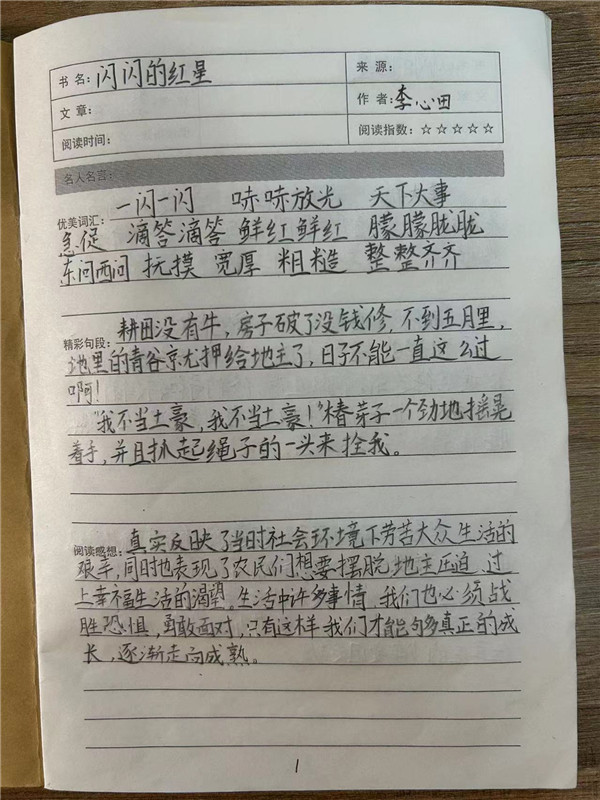 书名：闪闪的红星 来源：
文章： 作者：李心田
阅读时间： 阅读指数：☆☆☆☆☆
名人名言：
一闪一闪 哧哧放光 天下大事
优美词汇：
急促 滴答滴答 鲜红鲜红 朦朦胧胧
东问西问 抚摸 宽厚 粗糙 整整齐齐
耕田没有牛，房子破了没钱修，不到五月里，
精彩句段：
地里的青谷就押给地主了，日子不能一直这么过
啊！
“我不当土豪，我不当土豪！”椿芽子一个劲地摇晃
着手，并且抓起绳子的一头来拴我。
阅读感想：真实反映了当时社会环境下劳苦大众生活的
艰辛，同时也表现了农民们想要摆脱地主压迫，过
上幸福生活的渴望。生活中许多事情，我们也必须战
胜恐惧，勇敢面对，只有这样我们才能够多真正的成
长，逐渐走向成熟。
1